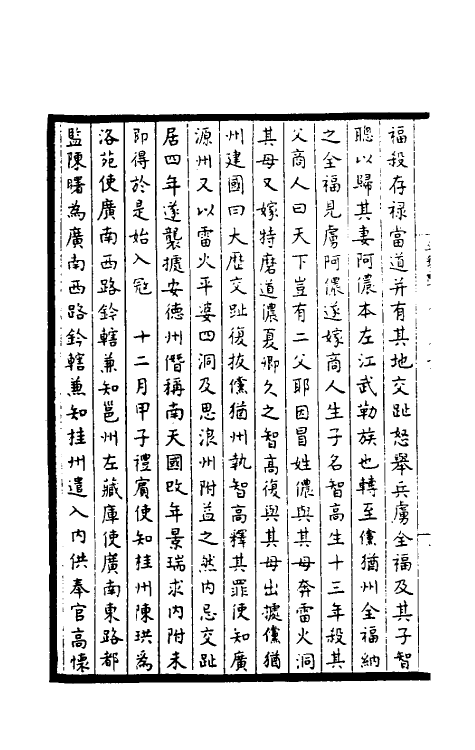 福殺存祿當道并有其地交趾怒舉兵虜全福及其子智
聰以歸其妻阿儂本左江武勒族也轉至儻猶州全福納
之全福見虜阿儂遂嫁商人生子名智高生十三年殺其
父商人曰天下豈有二父耶因冒姓儂與其母奔雷火洞
其母又嫁特磨道儂夏卿久之智高復與其母出據儻猶
州建國曰大歷交趾復拔儻猶州執智高釋其罪使知廣
源州又以雷火平婆四洞及思浪州附益之然内忌交趾
居四年遂襲據安德州僭稱南天國改年景瑞求内附未
即得於是始入寇　十二月甲子禮賓使知桂州陳珙爲
洛苑使廣南西路鈐轄兼知邕州左藏庫使廣南東路都
監陳曙為廣南西路鈐轄兼知桂州遣入内供奉官高懷